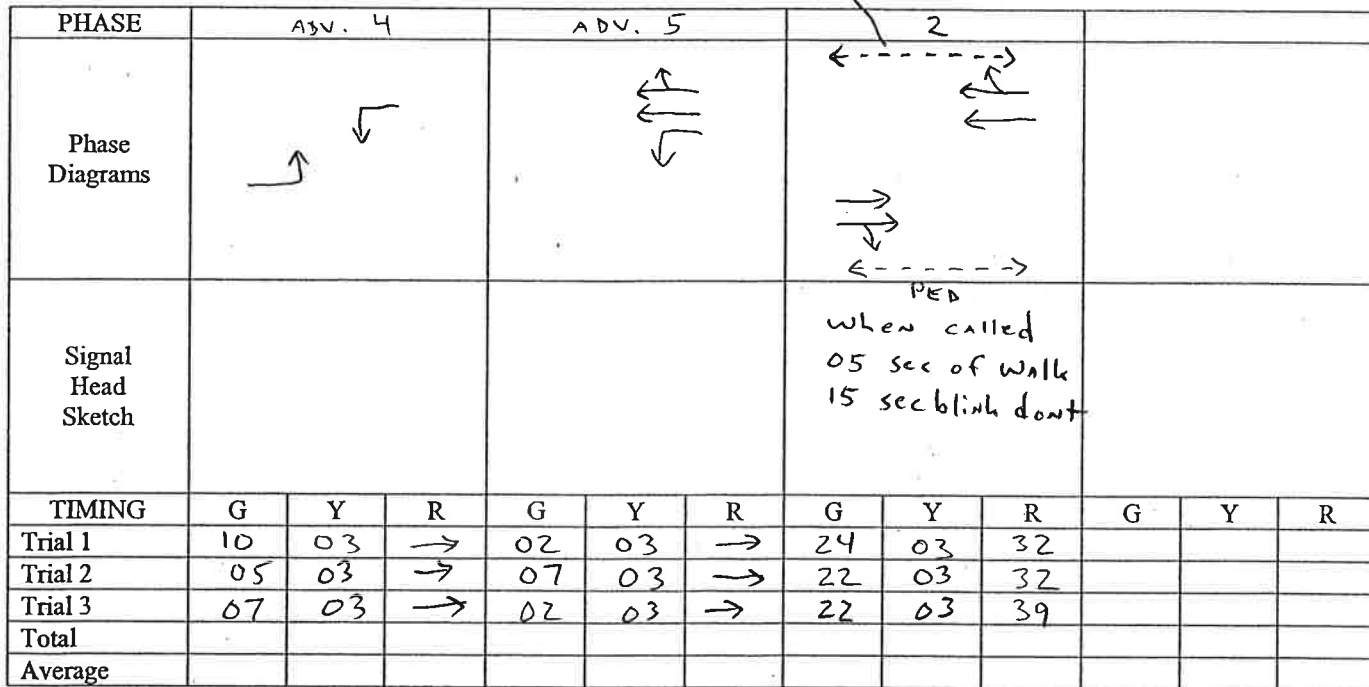 PHASE ADV. 4 ADV. 5 2
Phase
Diagrams
PED
Signal
Head
Sketch
when called
05 sec of walk
15 sec blink dont
TIMING G Y R G Y R G Y R G Y R
Trial 1 10 03 → 02 03 → 24 03 32
Trial 2 05 03 → 07 03 → 22 03 32
Trial 3 07 03 → 02 03 → 22 03 39
Total
Average